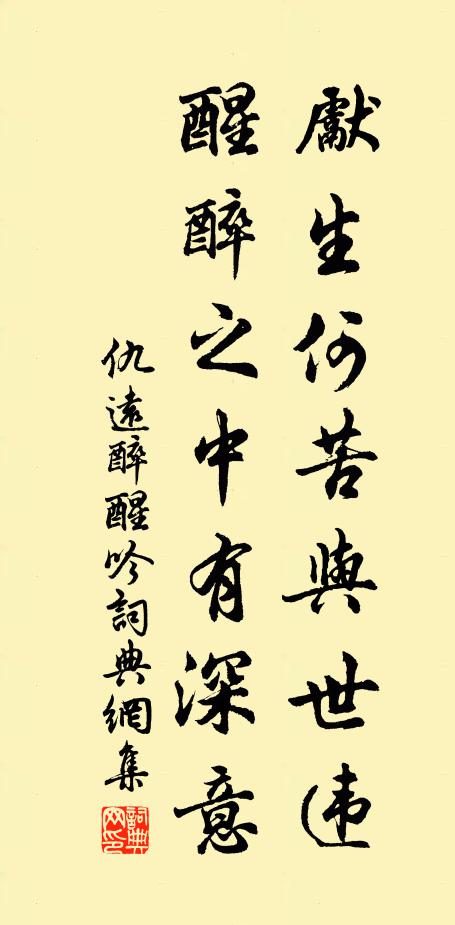 獻生何苦與世违
醒醉之中有深意
仇遠醉醒吟詞典網集
詞典网印